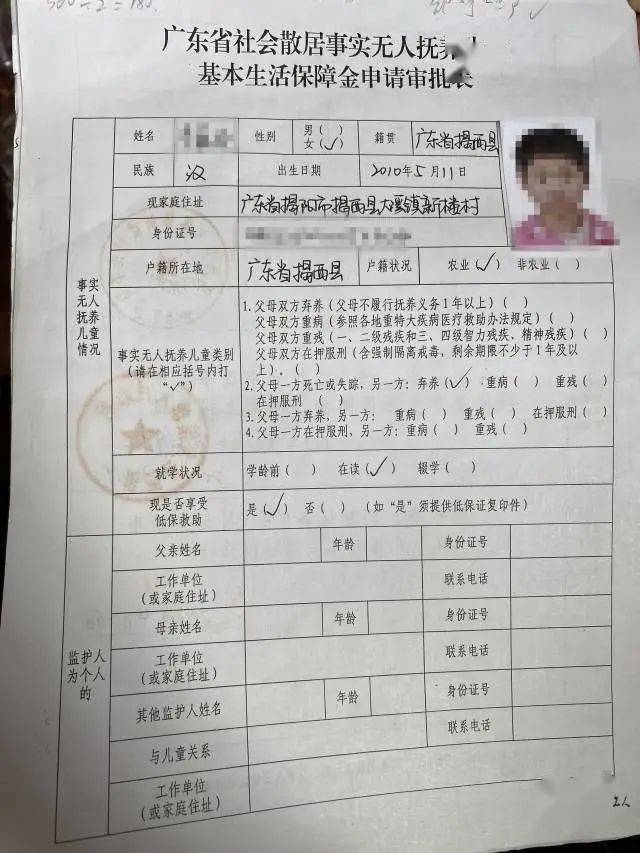 广东省社会散居事实无人抚养人
基本生活保障金申请审批表
姓名 性别 男( ) 女(✓) 籍贯 广东省揭西县
民族 汉 出生日期 2010年5月11日
现家庭住址 广东省揭阳市揭西县大溪镇新楼村
身份证号
户籍所在地 广东省揭西县 户籍状况 农业(✓) 非农业( )
事实无人抚养儿童情况
事实无人抚养儿童类别
(请在相应括号内打
“✓”)
1.父母双方弃养(父母不履行抚养义务1年以上)( )
父母双方重病(参照各地重特大疾病医疗救助办法规定)( )
父母双方重残(一、二级残疾和三、四级智力残疾、精神残疾)( )
父母双方在押服刑(含强制隔离戒毒,剩余期限不少于1年及以
上)。( )
2.父母一方死亡或失踪,另一方:弃养(✓) 重病( ) 重残( )
在押服刑( )
3.父母一方弃养,另一方: 重病( ) 重残( ) 在押服刑( )
4.父母一方在押服刑,另一方:重病( ) 重残( )
就学状况 学龄前( ) 在读(✓) 辍学( )
现是否享受
低保救助
是(✓) 否( ) (如“是”须提供低保证复印件)
监护人为个人的
父亲姓名 年龄 身份证号
工作单位
(或家庭住址)
联系电话
母亲姓名 年龄 身份证号
工作单位
(或家庭住址)
联系电话
其他监护人姓名 年龄 身份证号
联系电话
与儿童关系
工作单位
(或家庭住址)
2人